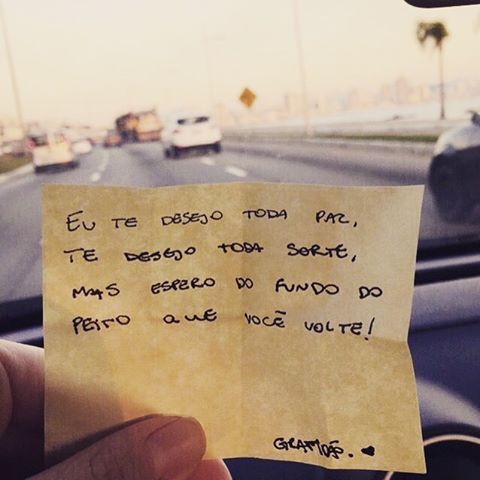 EU TE DESEJO TODA PAZ,
TE DESEJO TODA SORTE,
MAS ESPERO DO FUNDO DO
PEITO QUE VOCÊ VOLTE!